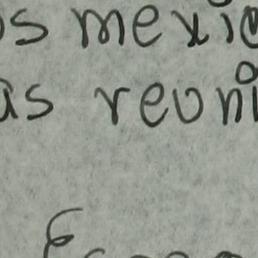 os mexic
as reoni